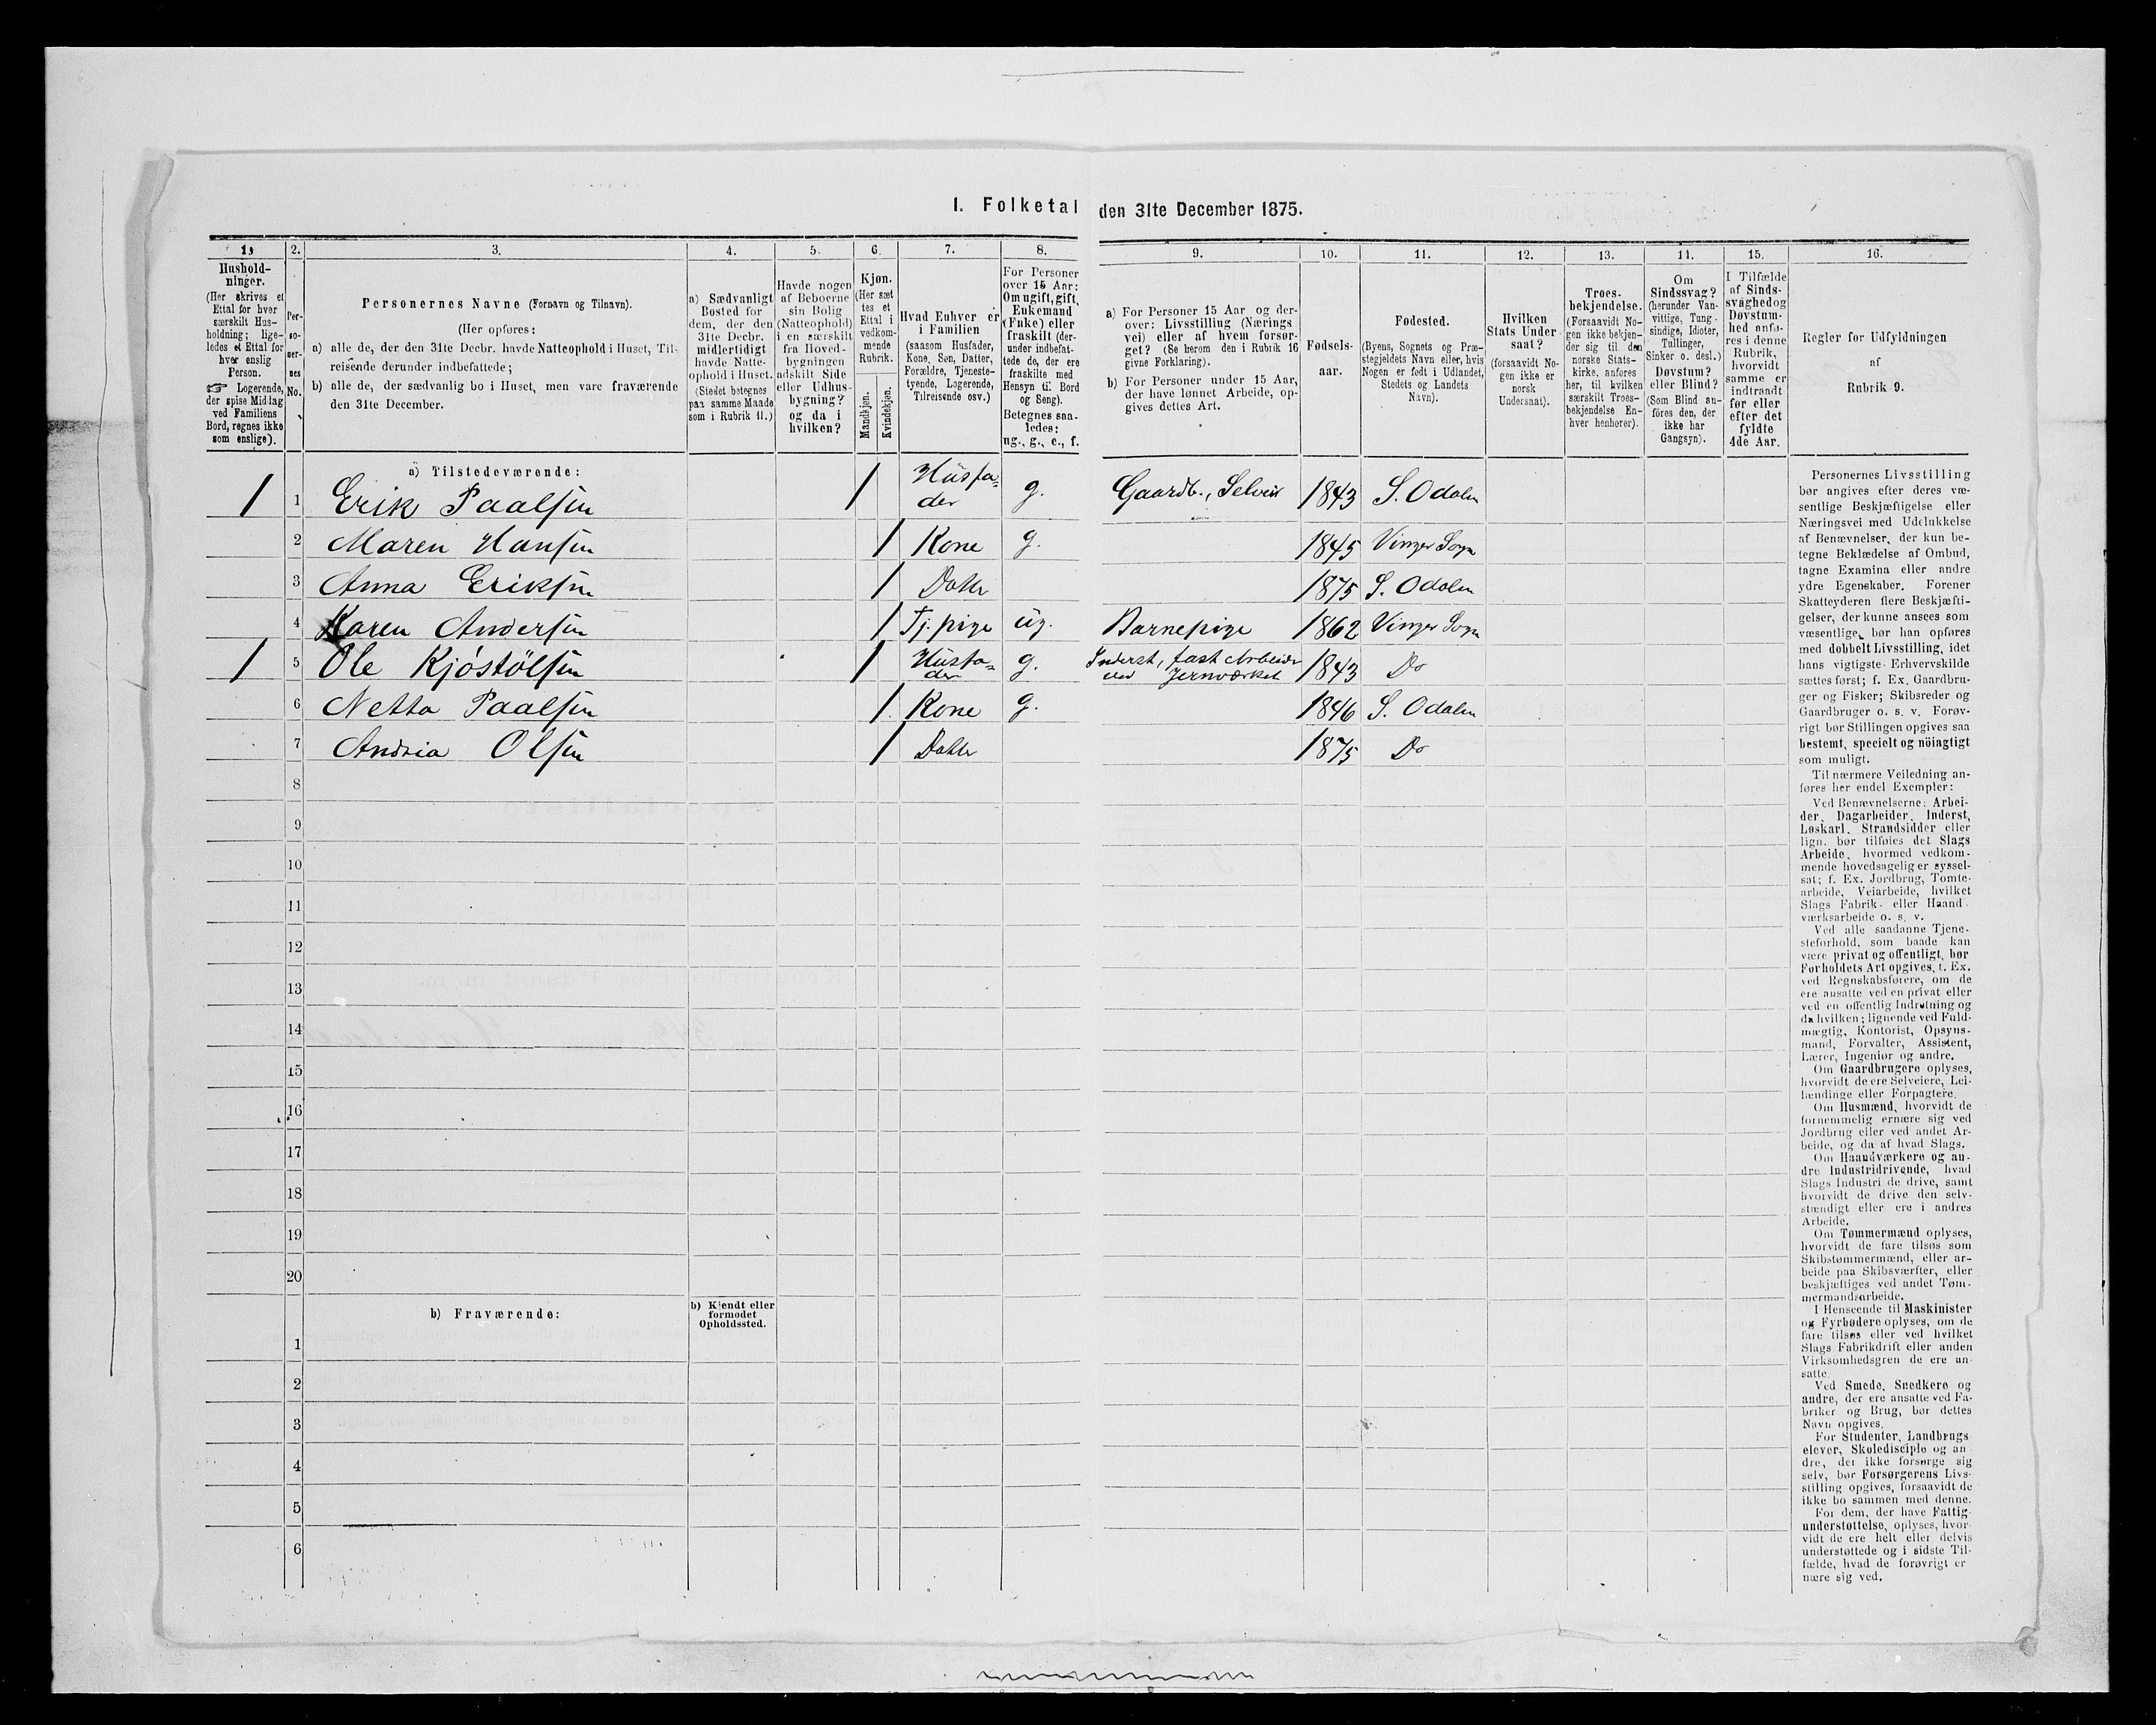 I. Folketal den 31te December 1875.
1. 2. 3. 4. 5. 6. 7. 8. 9. 10. 11. 12. 13. 14. 15. 16.
Hushold-
ninger.
(Her skrives et
Ettal for hver
særskilt Hus-
holdning; lige-
ledes et Ettal for
hver enslig
Person.
☞ Logerende,
der spise Middag
ved Familiens
Bord, regnes ikke
som enslige).
Per-
so-
ner-
nes
No.
Personernes Navne (Fornavn og Tilnavn).
(Her opføres:
a) alle de, der den 31te Decbr. havde Natteophold i Huset, Til-
reisende derunder indbefattede;
b) alle de, der sædvanlig bo i Huset, men vare fraværende
den 31te December.
a) Sædvanligt
Bosted for
dem, der den
31te Decbr.
midlertidigt
havde Natte-
ophold i Huset.
(Stedet betegnes
paa samme Maade
som i Rubrik 11.)
Havde nogen
af Beboerne
sin Bolig
(Natteophold)
i en særskilt
fra Hoved-
bygningen
adskilt Side
eller Udhus-
bygning?
og da i
hvilken?
Kjøn.
(Her sæt
tes et
Ettal i
vedkom-
mende
Rubrik.
Mandkjøn.
Kvindekjøn.
Hvad Enhver er
i Familien
(saasom Husfader,
Kone, Søn, Datter,
Forældre, Tjeneste-
tyende, Logerende,
Tilreisende osv.)
For Personer
over 15 Aar:
Om ugift, gift,
Enkemand
(Enke) eller
fraskilt (der-
under indbefat-
tede de, der ere
fraskilte med
Hensyn til Bord
og Seng).
Betegnes saa-
ledes:
ug., g., e., f.
a) For Personer 15 Aar og der-
over: Livsstilling (Nærings
vei) eller af hvem forsør-
get? (Se herom den i Rubrik 16
givne Forklaring).
b) For Personer under 15 Aar,
der have lønnet Arbeide, op-
gives dettes Art.
Fødsels-
aar.
Fødested.
(Byens, Sognets og Præ-
stegjeldets Navn eller, hvis
Nogen er født i Udlandet,
Stedets og Landets
Navn).
Hvilken
Stats Under-
saat?
(forsaavidt No-
gen ikke er
norsk
Undersaat).
Troes-
bekjendelse.
(Forsaavidt No-
gen ikke bekjen-
der sig til den
norske Stats-
kirke, anføres
her, til hvilken
særskilt Troes-
bekjendelse En-
hver henhører).
Om
Sindssvag?
(herunder Van-
vittige, Tung-
sindige, Idioter,
Tullinger,
Sinker o. desl.)
Døvstum?
eller Blind?
(Som Blind an-
føres den, der
ikke har
Gangsyn).
I Tilfælde
af Sinds-
svaghed og
Døvstum-
hed anfø-
res i denne
Rubrik,
hvorvidt
samme er
indtraadt
før eller
efter det
fyldte
4de Aar.
Regler for Udfyldningen
af
Rubrik 9.
a) Tilstedeværende:
1 1 Erik Paalsen 1 Husfader g. Gaardb., Selveier 1843 S. Odalen
2 Maren Hansen 1 Kone g. 1845 Vinger Sogn
3 Anna Eriksen 1 Datter 1875 S. Odalen
4 Karen Andersen 1 Tj. pige ug. Barnepige 1862 Vinger Sogn
1 5 Ole Kjöstölsen 1 Husfader g. Inderst, fast Arbeider ved Jernværket 1843 Do
6 Netta Paalsen 1 Kone g. 1846 S. Odalen
7 Andria Olsen 1 Datter 1875 Do
8
9
10
11
12
13
14
15
16
17
18
19
20
b) Fraværende:
b) Kjendt eller
formodet
Opholdssted.
1
2
3
4
5
6
Personernes Livsstilling
bør angives efter deres væ-
sentlige Beskjæftigelse eller
Næringsvei med Udelukkelse
af Benævnelser, der kun be-
tegne Beklædelse af Ombud,
tagne Examina eller andre
ydre Egenskaber. Forener
Skatteyderen flere Beskjæfti-
gelser, der kunne ansees som
væsentlige, bør han opføres
med dobbelt Livsstilling, idet
hans vigtigste Erhvervskilde
sættes først; f. Ex. Gaardbru-
ger og Fisker; Skibsreder og
Gaardbruger o. s. v. Forøv-
rigt bør Stillingen opgives saa
bestemt, specielt og nöiagtigt
som muligt.
Til nærmere Veiledning an-
føres her endel Exempler:
Ved Benævnelserne: Arbei-
der, Dagarbeider, Inderst,
Løskarl, Strandsidder eller
lign. bør tilføies det Slags
Arbeide, hvormed vedkom-
mende hovedsagelig er syssel-
sat; f. Ex. Jordbrug, Tomte-
arbeide, Veiarbeide, hvilket
Slags Fabrik- eller Haand-
værksarbeide o. s. v.
Ved alle saadanne Tjene-
steforhold, som baade kan
være privat og offentligt, bør
Forholdets Art opgives, t. Ex.
ved Regnskabsførere, om de
ere ansatte ved en privat eller
ved en offentlig Indretning og
da hvilken; lignende ved Fuld-
mægtig, Kontorist, Opsyns-
mand, Forvalter, Assistent,
Lærer, Ingeniør og andre.
Om Gaardbrugere oplyses,
hvorvidt de ere Selveiere, Lei-
lændinge eller Forpagtere.
Om Husmænd, hvorvidt de
fornemmelig ernære sig ved
Jordbrug eller ved andet Ar-
beide, og da af hvad Slags.
Om Haandværkere og an-
dre Industridrivende, hvad
Slags Industri de drive, samt
hvorvidt de drive den selv-
stændigt eller ere i andres
Arbeide.
Om Tømmermænd oplyses,
hvorvidt de fare tilsøs som
Skibstømmermænd, eller ar-
beide paa Skibsværfter, eller
beskjæftiges ved andet Tøm-
mermandsarbeide.
I Henseende til Maskinister
og Fyrbødere oplyses, om de
fare tilsøs eller ved hvilket
Slags Fabrikdrift eller anden
Virksomhedsgren de ere an-
satte.
Ved Smede, Snedkere og
andre, der ere ansatte ved Fa-
briker og Brug, bør dettes
Navn opgives.
For Studenter, Landbrugs-
elever, Skoledisciple og an-
dre, der ikke forsørge sig
selv, bør Forsørgerens Livs-
stilling opgives, forsaavidt de
ikke bo sammen med denne.
For dem, der have Fattig-
understøttelse, oplyses, hvor-
vidt de ere helt eller delvis
understøttede og i sidste Til-
fælde, hvad de forøvrigt er
nære sig ved.